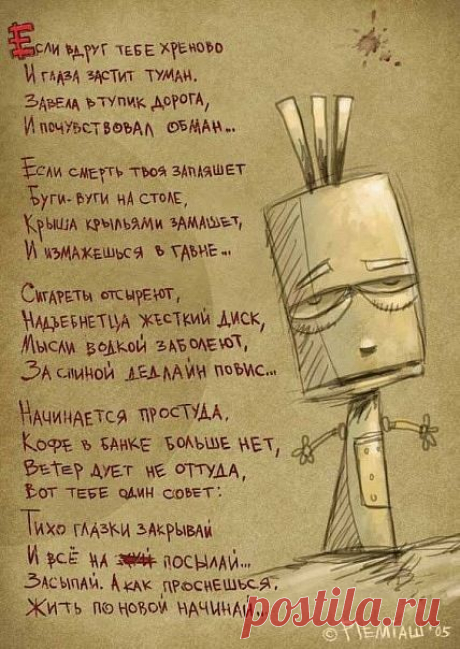 Если вдруг тебе хреново
И глаза застит туман.
Завела в тупик дорога,
И почувствовал обман...
Если смерть твоя запляшет
Буги-вуги на столе,
Крыша крыльями замашет,
И измажешься в гавне...
Сигареты отсыреют,
Надъебнетца жесткий диск,
Мысли водкой заболеют,
За спиной дедлайн повис...
Начинается простуда,
Кофе в банке больше нет,
Ветер дует не оттуда,
Вот тебе один совет:
Тихо глазки закрывай
И всё на посылай...
Засыпай. А как проснешься,
Жить по новой начинай...
postila.ru
© Пемгаш '05